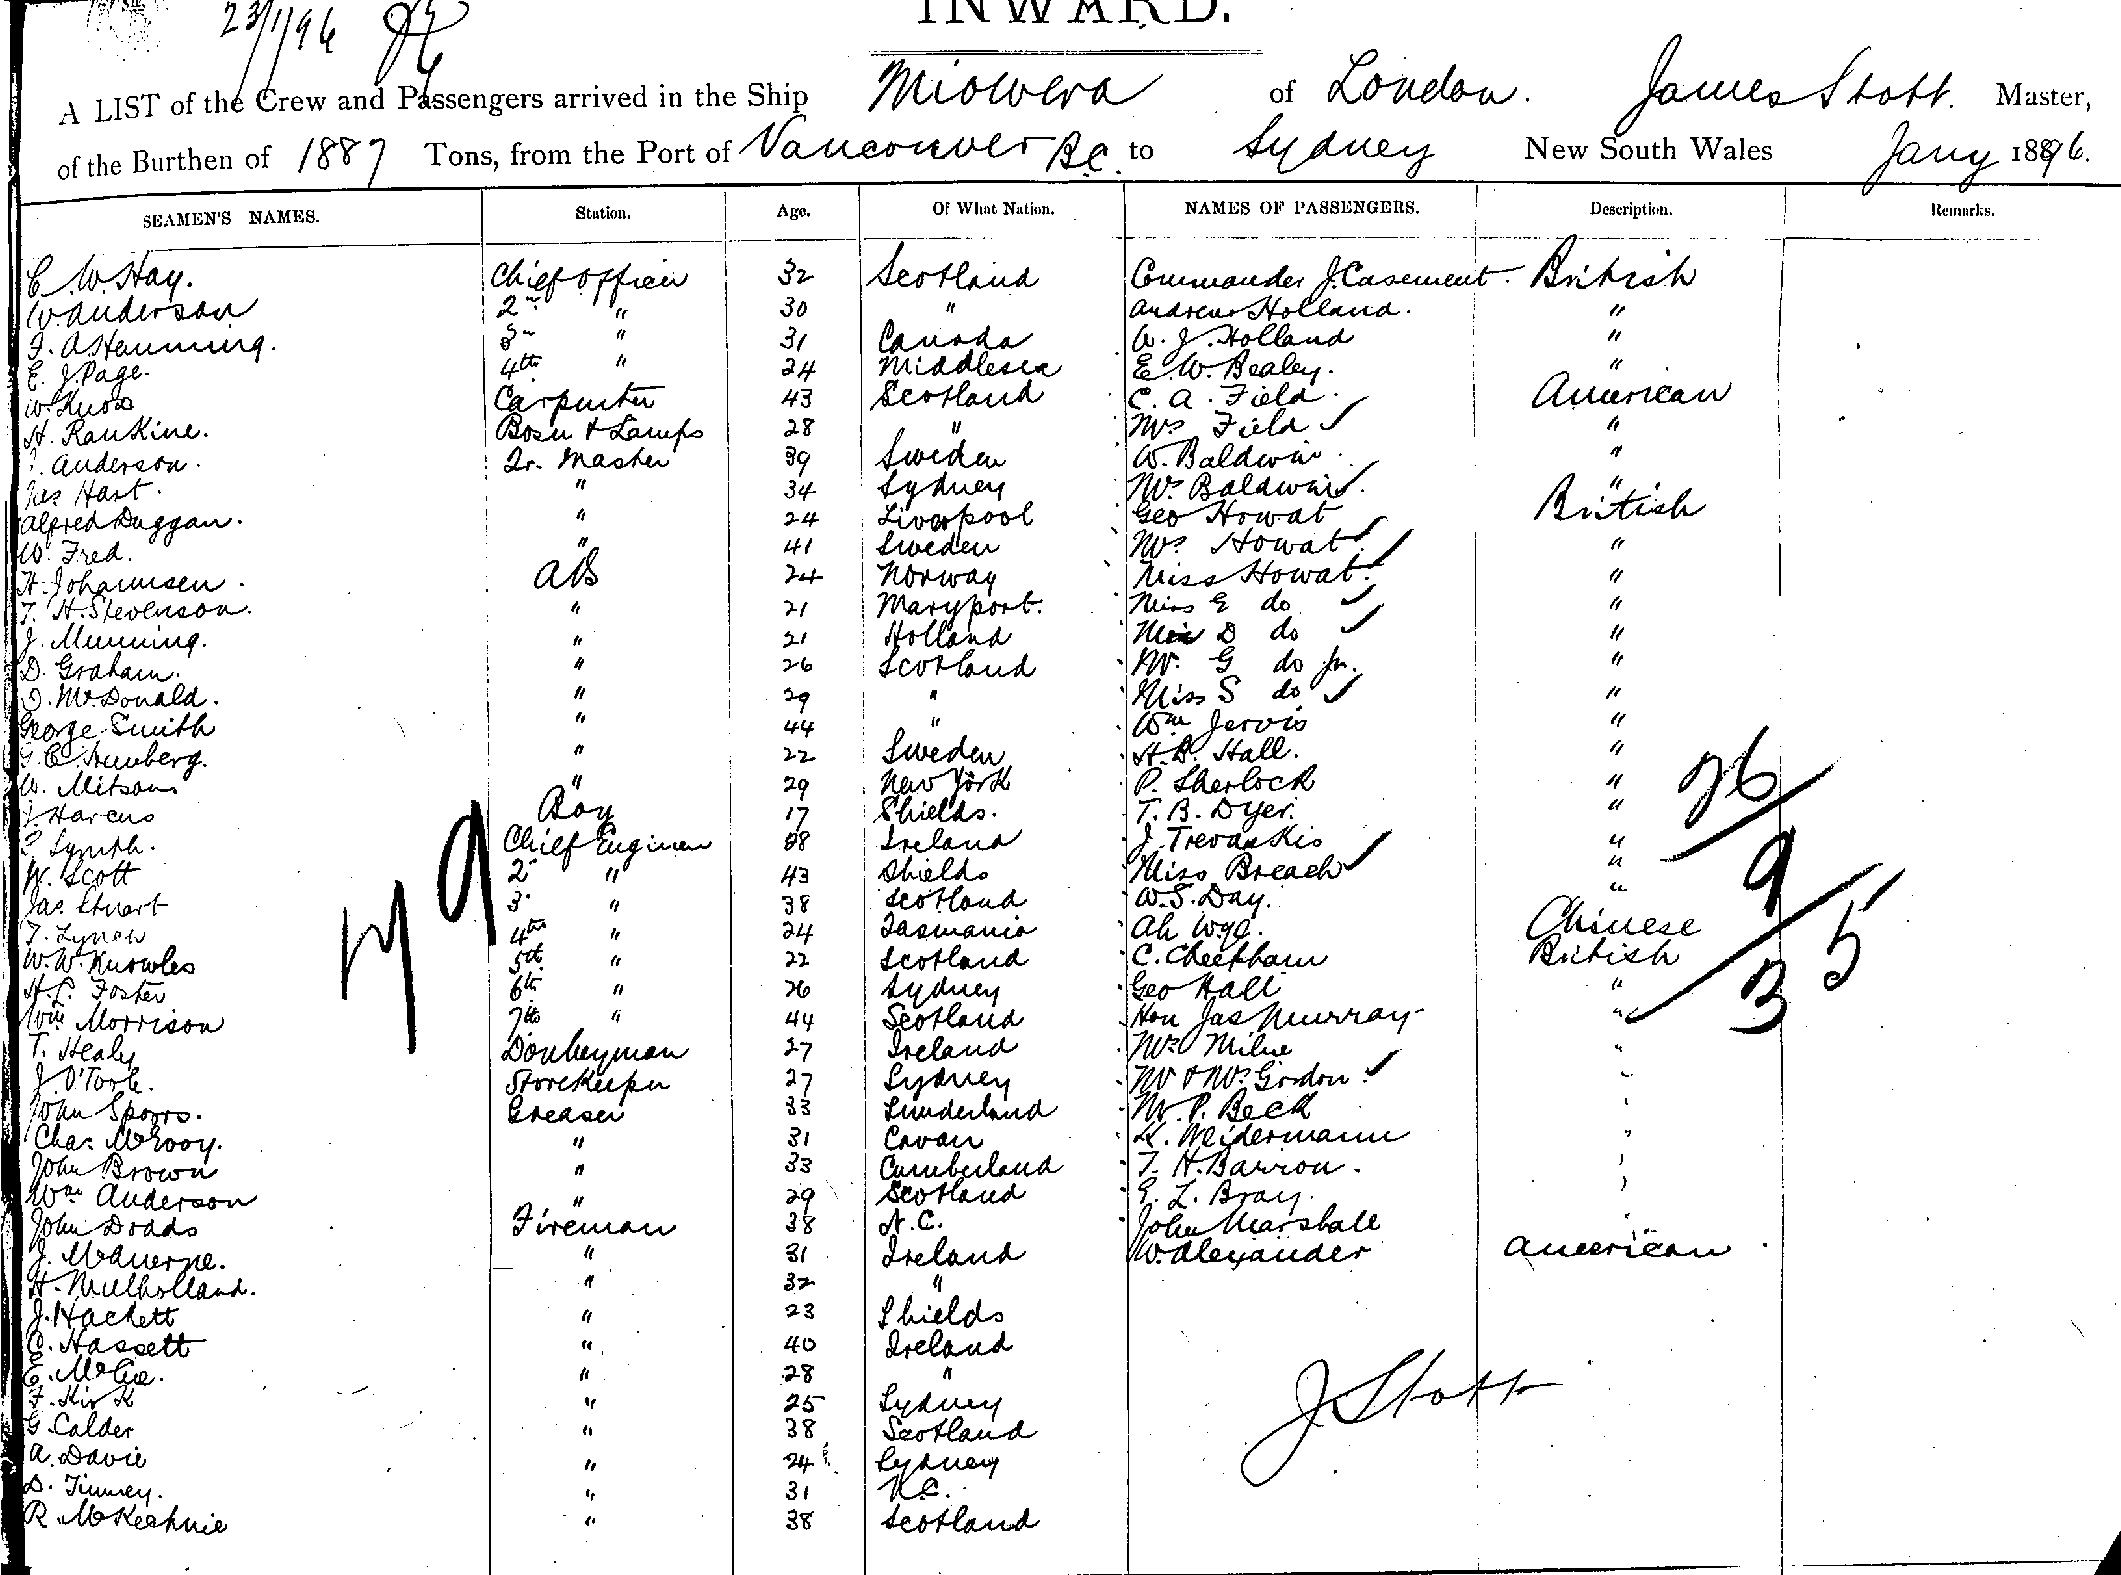 23/1/96
INWARD.
A LIST of the Crew and Passengers arrived in the Ship Miowera of London. James Stott. Master,
of the Burthen of 1887 Tons, from the Port of Vancouver B.C. to Sydney New South Wales Jany 1896.
SEAMEN'S NAMES. Station. Age. Of What Nation. NAMES OF PASSENGERS. Description. Remarks.
C. W. Hay. Chief Officer 32 Scotland Commander J. Casement. British
W. Anderson 2nd " 30 " Andrew Holland. "
" 31 Canada W. J. Holland "
E. J. Page. 4th " 24 Middlesex E. W. Bealey. "
W. Knox Carpenter 43 Scotland C. A. Field. American
H. Rankine. Bosn & Lamps 28 " Mrs Field "
Anderson. Qr. Master 39 Sweden W. Baldwin "
Jas Hart. " 34 Sydney Mrs Baldwin. "
Alfred Duggan. " 24 Liverpool Geo Howat British
W. Fred. " 41 Sweden Mrs Howat. "
H. Johannsen. AB 24 Norway Miss Howat. "
T. H. Stevenson. " 21 Maryport. Miss E do "
J. Munning. " 21 Holland Miss D do "
D. Graham. " 26 Scotland Mr. G do Jn. "
D. McDonald. " 29 " Miss S do "
George Smith " 44 " Wm Jervis "
" 22 Sweden H. B. Hall. "
W. Mitson " 29 New York P. Sherlock "
J Harcus Boy 17 Shields. T. B. Dyer. "
Chief Engineer 38 Ireland J. Trevaskis "
W. Scott 2nd " 43 Shields Miss Breach "
Jas Stuart 3rd " 38 Scotland W. S. Day. "
T. Lynch 4th " 24 Tasmania Ah Wye. Chinese
W. W. Knowles 5th " 22 Scotland C. Cheetham British
H. L. Foster 6th " 26 Sydney Geo Hall "
Wm Morrison 7th " 44 Scotland Hon Jas Murray "
T. Healy Donkeyman 27 Ireland Mrs Milne "
J. O'Toole. Storekeeper 27 Sydney Mr & Mrs Gordon. "
John Sporrs. Greaser 33 Sunderland Mr. P. Beck "
Chas McEvoy. " 31 Cavan K. Weidermann "
John Brown " 33 Cumberland T. H. Barron. "
Wm Anderson " 29 Scotland E. L. Bray. "
John Dodds Fireman 38 N.C. John Marshall "
" 31 Ireland W. Alexander American
H. Mulholland. " 32 "
J. Hackett " 23 Shields
C. Hassett " 40 Ireland
E. McGee. " 28 "
F. Kirk " 25 Sydney
G. Calder " 38 Scotland
A. Davie " 24 Sydney
D. Finney. " 31 N.C.
R. McKechnie " 38 Scotland
26
9
35
J Stott